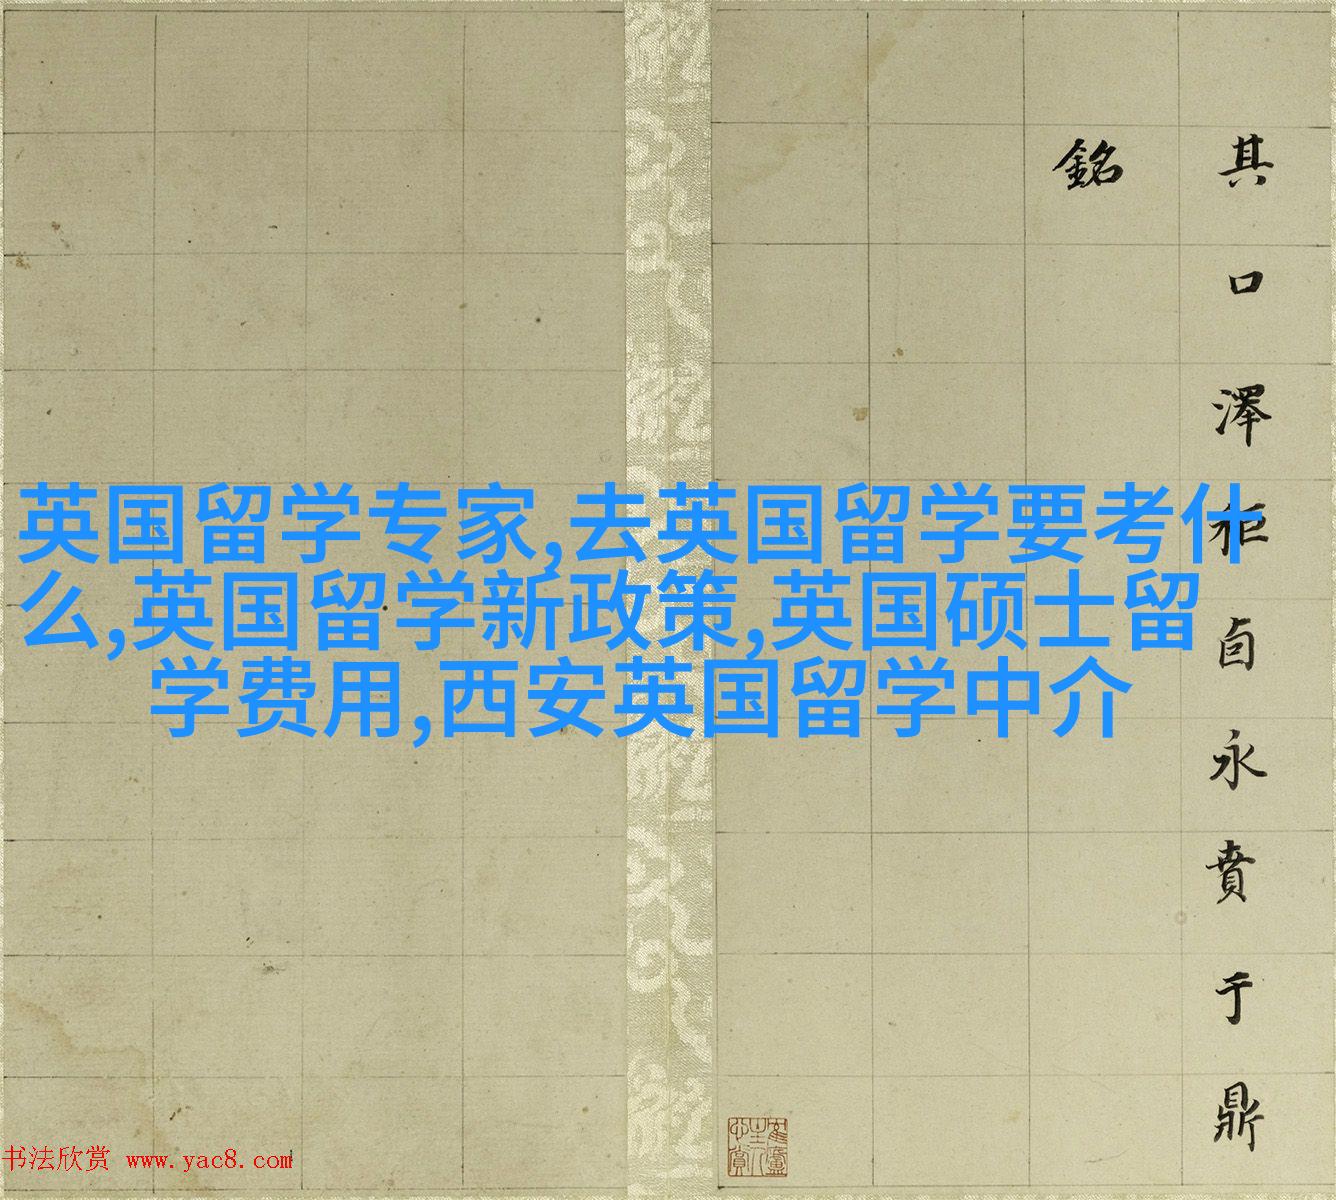 英国留学专家,去英国留学要考什
么,英国留学新政策,英国硕士留
学费用,西安英国留学中介
其口澤秬卣永賁于鼎
銘
书法欣赏 www.yac8.com